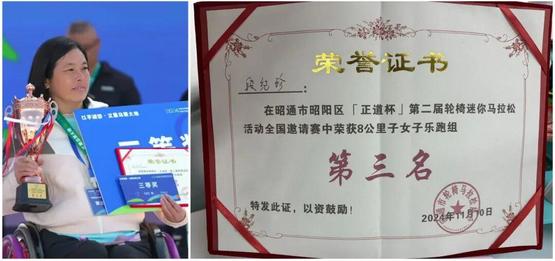 荣誉证书
三等奖
荣誉证书
在昭通市昭阳区「正道杯」第二届轮椅迷你马拉松
活动全国邀请赛中荣获8公里子女子乐跑组
第三名
特发此证，以资鼓励！
2024年11月10日